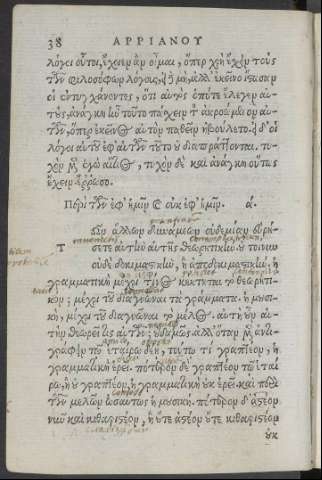 38 ΑΡΡΙΑΝΟΥ
λόγοι οὗτοι, ἔχοιεν ἂν οἶμαι, ὅπερ χρὴ ἔχειν τοὺς
τῶν φιλοσόφων λόγους, εἰ δὲ μὴ, ἀλλ' ἐκεῖνο ἴστωσαν
οἱ ἐντυγχάνοντες, ὅτι αὐτὸς ὁπότε ἔλεγεν αὐ-
τοὺς, ἀνάγκη ἦν τοῦτο πάσχειν τὸν ἀκροώμενον αὐ-
τῶν, ὅπερ ἐκεῖνος αὐτὸν παθεῖν ἠβούλετο. εἰ δ' οἱ
λόγοι αὐτοὶ ἐφ' αὑτῶν τοῦτο οὐ διαπράττονται, τυ-
χὸν μὲν ἐγὼ αἴτιος, τυχὸν δὲ καὶ ἀνάγκη οὕτως
ἔχειν. ἔρρωσο.
Περὶ τῶν ἐφ' ἡμῖν καὶ οὐκ ἐφ' ἡμῖν. α.
Τῶν ἄλλων δυνάμεων οὐδεμίαν εὑρή-
σετε αὐτὴν αὑτῆς θεωρητικὴν, οὐ τοίνυν
οὐδὲ δοκιμαστικὴν, ἢ ἀποδοκιμαστικὴν, ἡ
γραμματικὴ μέχρι τίνος κέκτηται τὸ θεωρητι-
κόν; μέχρι τοῦ διαγνῶναι τὰ γράμματα. ἡ μουσι-
κὴ, μέχρι τοῦ διαγνῶναι τὸ μέλος. αὐτὴ οὖν αὑ-
τὴν θεωρεῖ τις αὐτῶν; οὐδαμῶς. ἀλλ' ὅταν μὲν ἄν τι
γράφῃς τῷ ἑταίρῳ δέῃ, τούτων τί γραπτέον, ἡ
γραμματικὴ ἐρεῖ. πότερον δὲ γραπτέον τῷ ἑταί
ρῳ, ἢ οὐ γραπτέον, ἡ γραμματικὴ οὐκ ἐρεῖ. καὶ περὶ
τῶν μελῶν ὡσαύτως ἡ μουσικὴ. πότερον δ' ᾀστέον
νῦν καὶ κιθαριστέον, ἢ οὔτε ᾀστέον οὔτε κιθαριστέον
οὐκ